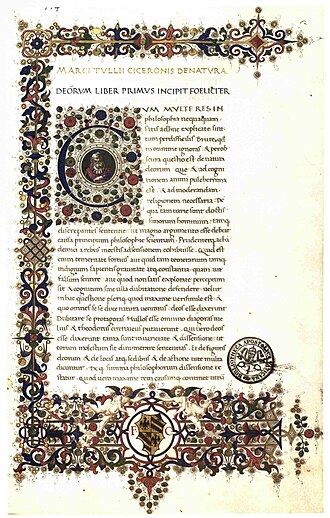 MARCI TULLII CICERONIS DE NATURA
DEORUM LIBER PRIMUS INCIPIT FOELICITER
CUM MULTE RES IN
philosophia nequaquam
satis adhuc explicate sint
tum perdifficilis Brute, q
tu minime ignoras & perob
scura questio est de natura
deorum que & ad cogni
tionem animi pulcherrima
est & ad moderandam
religionem necessaria De
qua tam varie sunt doctissi
morum hominum tamq
discrepantes sententie ut magno argumento esse debeat
causa principium philosophie scientiam Prudenterq achade
micos a rebus incertis adsensionem cohibuisse Quid est
enim temeritate fortius aut quid tam temerarium tamq
indignum sapientis gravitate atq constantia quam aut
falsum sentire aut quod non satis explorate perceptum
sit & cognitum sine ulla dubitatione defendere velut
in hac questione pleriq quod maxime verisimile est &
quo omnes sese duce natura vehimur deos esse dixerunt
Dubitare se protagoras Nullos esse omnino diagoras me
lius & theodorus cirenaicus putaverunt Qui vero deos
esse dixerunt tanta sunt in varietate & dissensione ut
eorum molestum sit dinumerare sententias Et de figuris
deorum & de locis atq sedibus & de actione vite multa
dicuntur De q summa philosophorum dissensione cer
tatur quod vero maxime rem causamq continet utrum